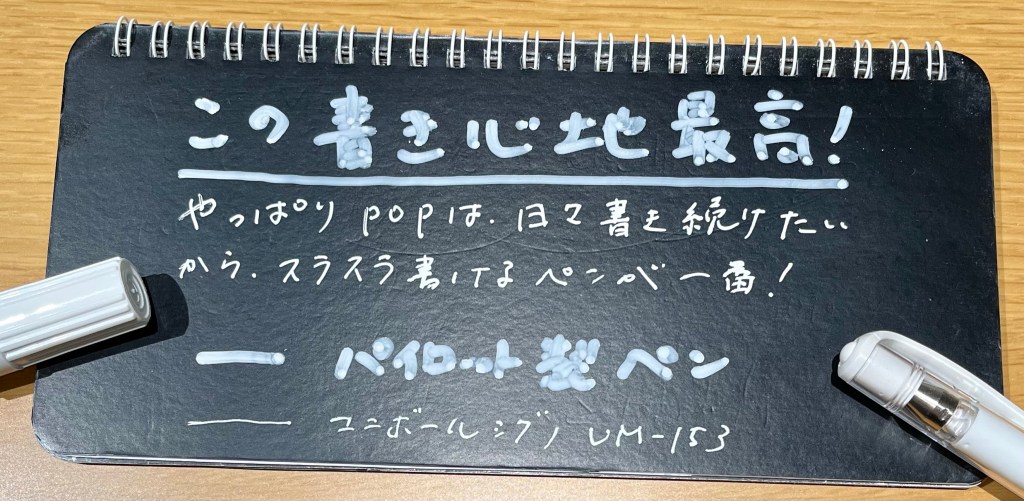 この書き心地最高!
やっぱりpopは、日々書き続けたい
から、スラスラ書けるペンが一番!
パイロット製ペン
ユニボールシグノ UM-153